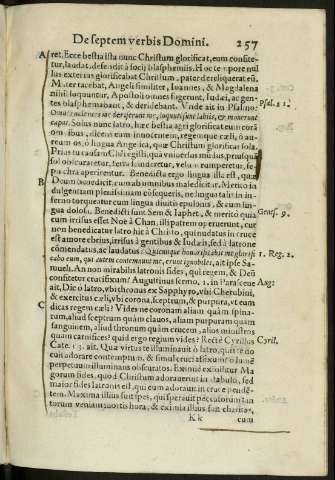 De septem verbis Domini. 257
A ret. Ecce bestia ista nunc Christum glorificat, eum confite-
tur, laudat, defendit à socij blasphemiis. Hoc tempore nul
lus externus glorificabat Christum, pater dereliquerat eũ.
Mater tacebat, Angeli similiter, Ioannes, & Magdalena
nihil loquuntur, Apostoli omnes fugerunt, Iudæi, ac gen-
tes blasphemabant, & deridebant. Vnde ait in Psalmo:
Omnes videntes me deriserunt me, loquuti sunt labiis, & mouerunt
Psal. 21.
caput. Solus nunc latro, hæc bestia agri glorificat eum corã
omnibus, dicens eum innocentem, regemque cæli, ô au-
reum os, ô lingua Angelica, quæ Christum glorificat sola.
Prius tu causam Christi egisti, quà vniuersus mũdus, prusquã
sol obscuraretur, terra scinderetur, velum rumperetur, se-
pulchra aperirentur. Benedicta ergo lingua illa est, quæ
B Deum benedicit, cum ab omnibus maledicitur. Merito in-
dulgentiam plenissimam cõsequeris, ne lingua talis in in-
ferno torqueatur cum lingua diuitis epulonis, & cum lin-
gua dolosi. Benedicti sunt Sem & Iaphet, & meritò quia
Genes. 9.
cum irrisus esset Noè à Chan, illi patrem operuerunt, cur
non benedicatur latro hic à Christo, qui nudatus in cruce
est amore ebrius, irrisus à gentibus & Iudæis, sed à latrone
cõmendatus, ac laudatus? Quicunque honorificauerit me glorifi-
1. Reg. 2.
cabo eum, qui autem contemnunt me, erunt ignobiles, ait ipse Sa-
mueli. An non mirabilis latronis fides, qui regem, & Deũ
confitetur crucifixum? Augustinus sermo. 1. in Parasceue
Aug:
ait, Dic ô latro, vbi thronus ex Sapphyro, vbi Cherubini,
& exercitus cæli, vbi corona, sceptrum, & purpura, vt eum
C dicas regem cæli? Vides ne coronam aliam quàm spina-
rum, aliud sceptrum quàm clauos, aliam purpuram quàm
sanguinem, aliud thronum quàm crucem, alios ministros
quam carnifices? quid ergo regium vides? Rectè Cyrillus
Cyril.
Cate. 13. ait. Qua virtute te illuminauit ô latro, quis te do
cuit adorare contemptum, & simul crucifixum? ô lumẽ
perpetuum illuminans obscuratos. Eximiè exolitur Ma
gorum fides, quod Christum adorauerunt in stabulo, sed
maior fides latronis est, qui eum adorat in cruce pendẽ-
tem. Maxima illius fuit spes, qui sperauit peccatorum tan
torum veniam mortis hora, & eximia illius fuit charitas,
Kk cum